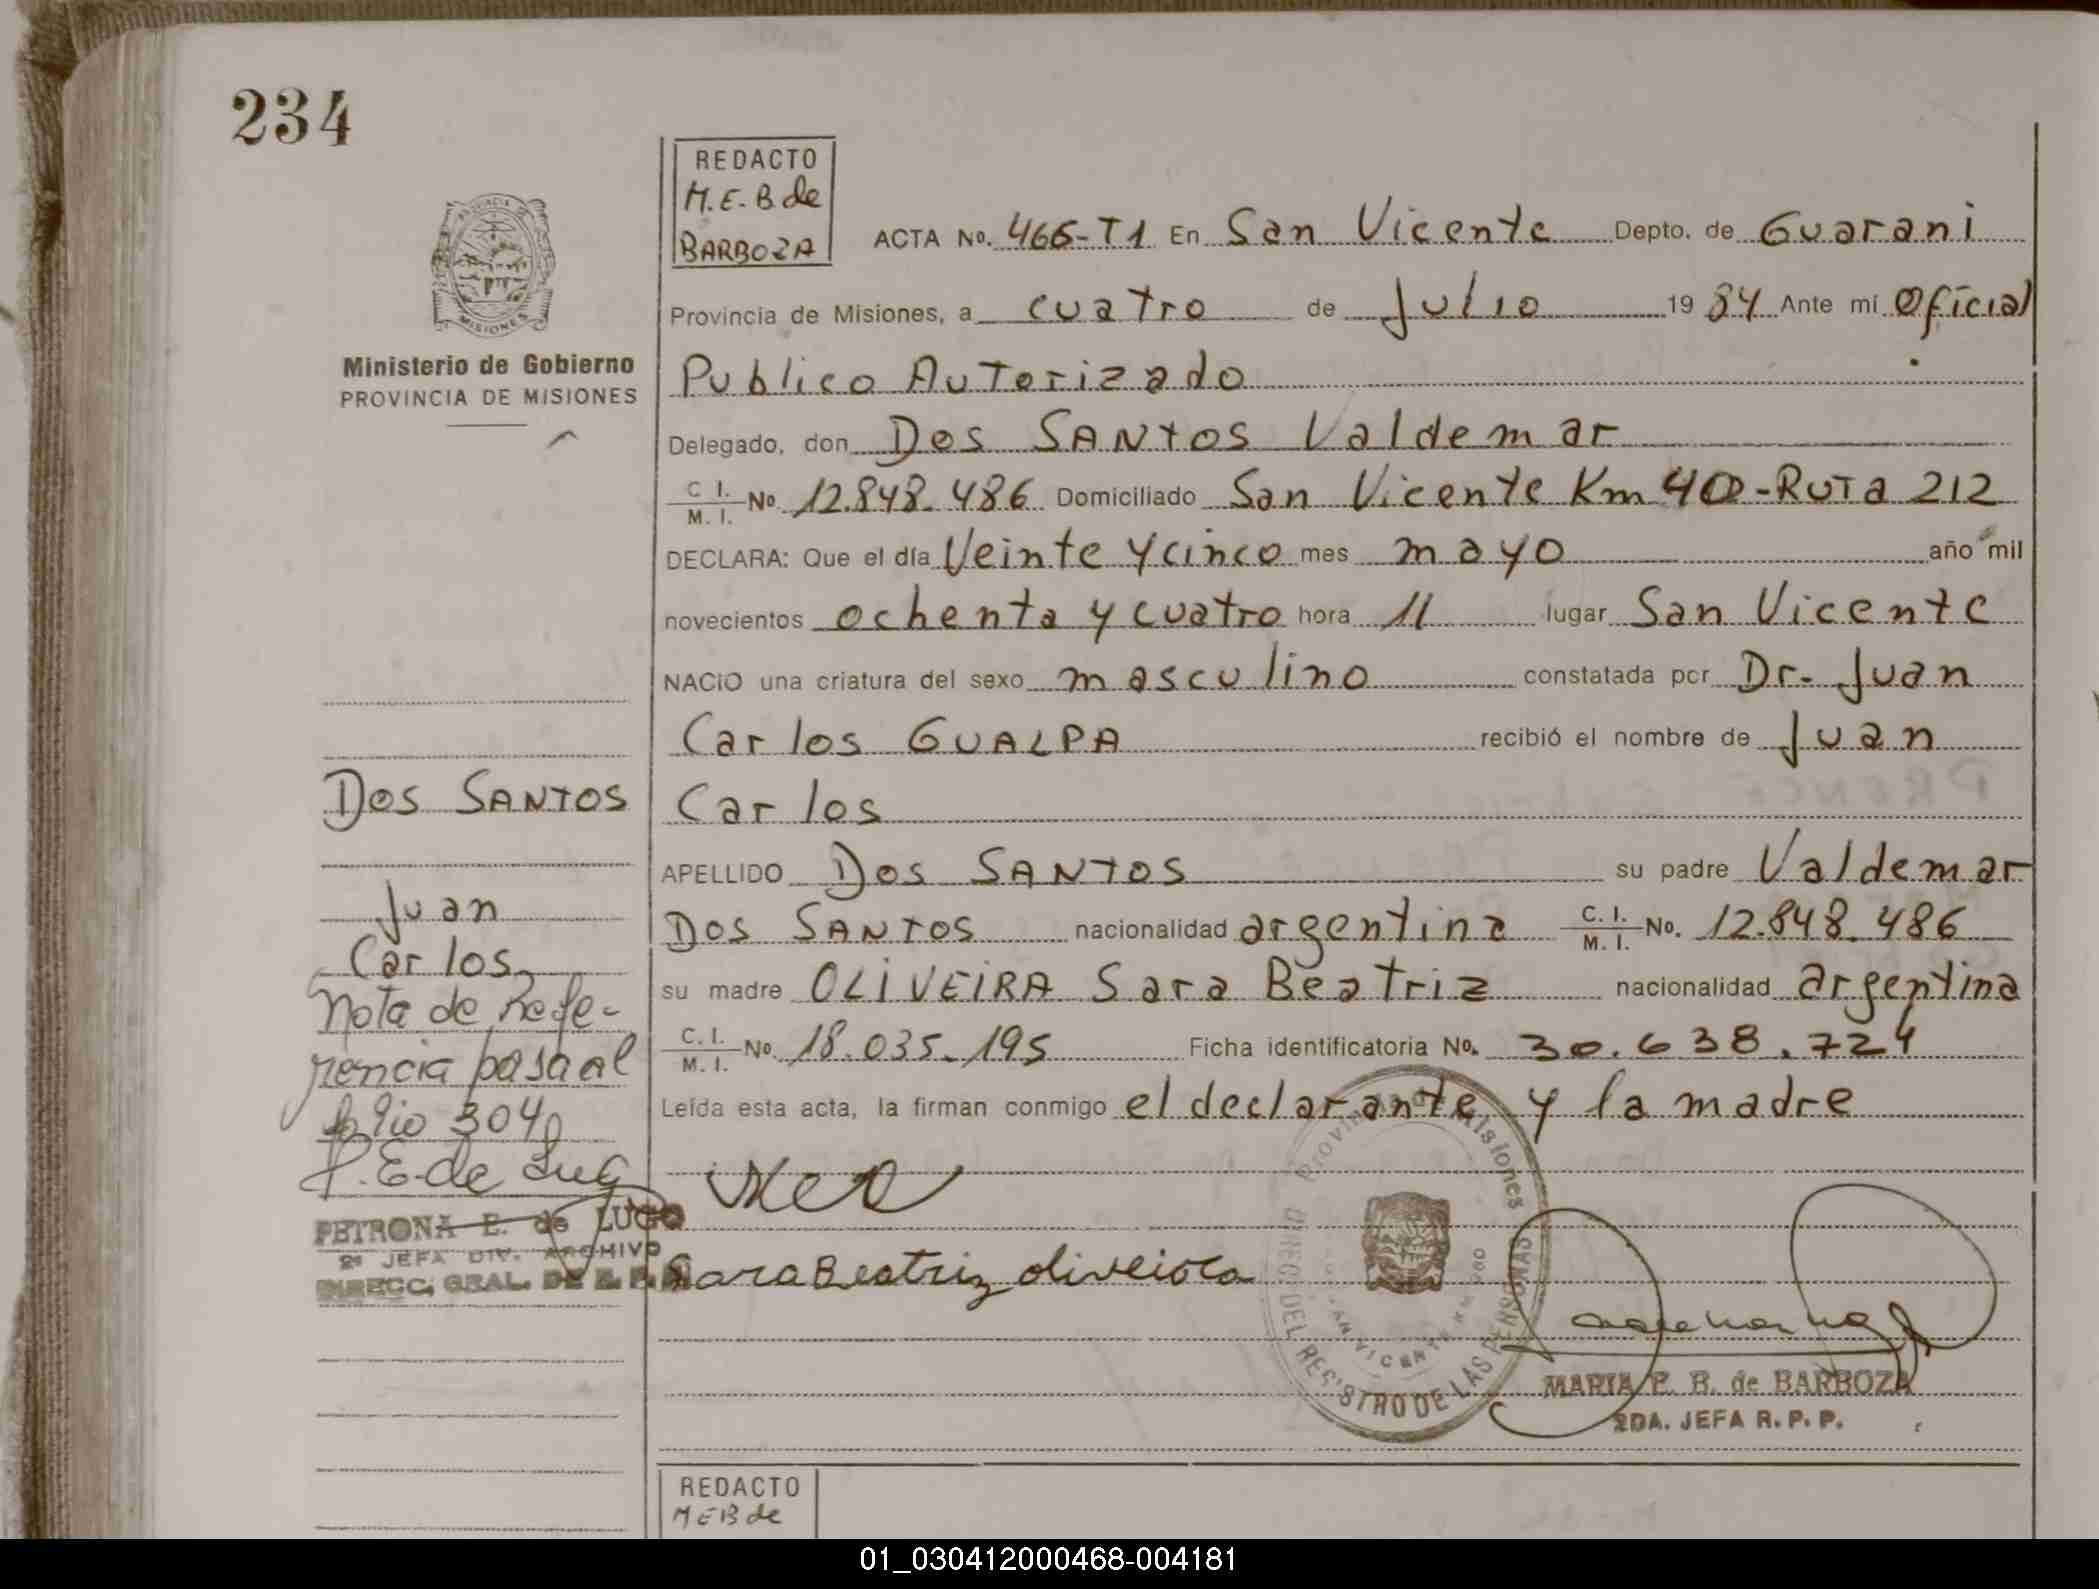 234
REDACTO
M.E.B de
BARBOZA
ACTA No. 466-T1 En San Vicente Depto. de Guarani
PROVINCIA DE
MISIONES
Provincia de Misiones, a cuatro de Julio 1984 Ante mí Oficial
Ministerio de Gobierno
PROVINCIA DE MISIONES
Publico Autorizado
Delegado, don Dos SANTOS Valdemar
C I. M. I. No. 12.848.486 Domiciliado San Vicente Km 40-RUTA 212
DECLARA: Que el día Veinte y cinco mes mayo año mil
novecientos ochenta y cuatro hora 11 lugar San Vicente
NACIO una criatura del sexo masculino constatada por Dr. Juan
Carlos GUALPA recibió el nombre de Juan
Carlos
APELLIDO Dos SANTOS su padre Valdemar
Dos SANTOS nacionalidad argentina C. I. M. I. No. 12.848.486
su madre OLIVEIRA Sara Beatriz nacionalidad argentina
C. I. M. I. No. 18.035.195 Ficha identificatoria No. 30.638.724
Leída esta acta, la firman conmigo el declarante y la madre
Dos SANTOS
Juan
Carlos
Nota de Refe-
rencia pasa al
folio 304
P.E. de Lug
PETRONA E. de LUGO
2ª JEFA DIV. ARCHIVO
DIRECC. GRAL. DE R. P.
Sara Beatriz oliveira
Provincia de Misiones
DIREC. DEL REGISTRO DE LAS PERSONAS
SAN VICENTE
MARIA E. B. de BARBOZA
2DA. JEFA R. P. P.
REDACTO
M E B de
01_030412000468-004181